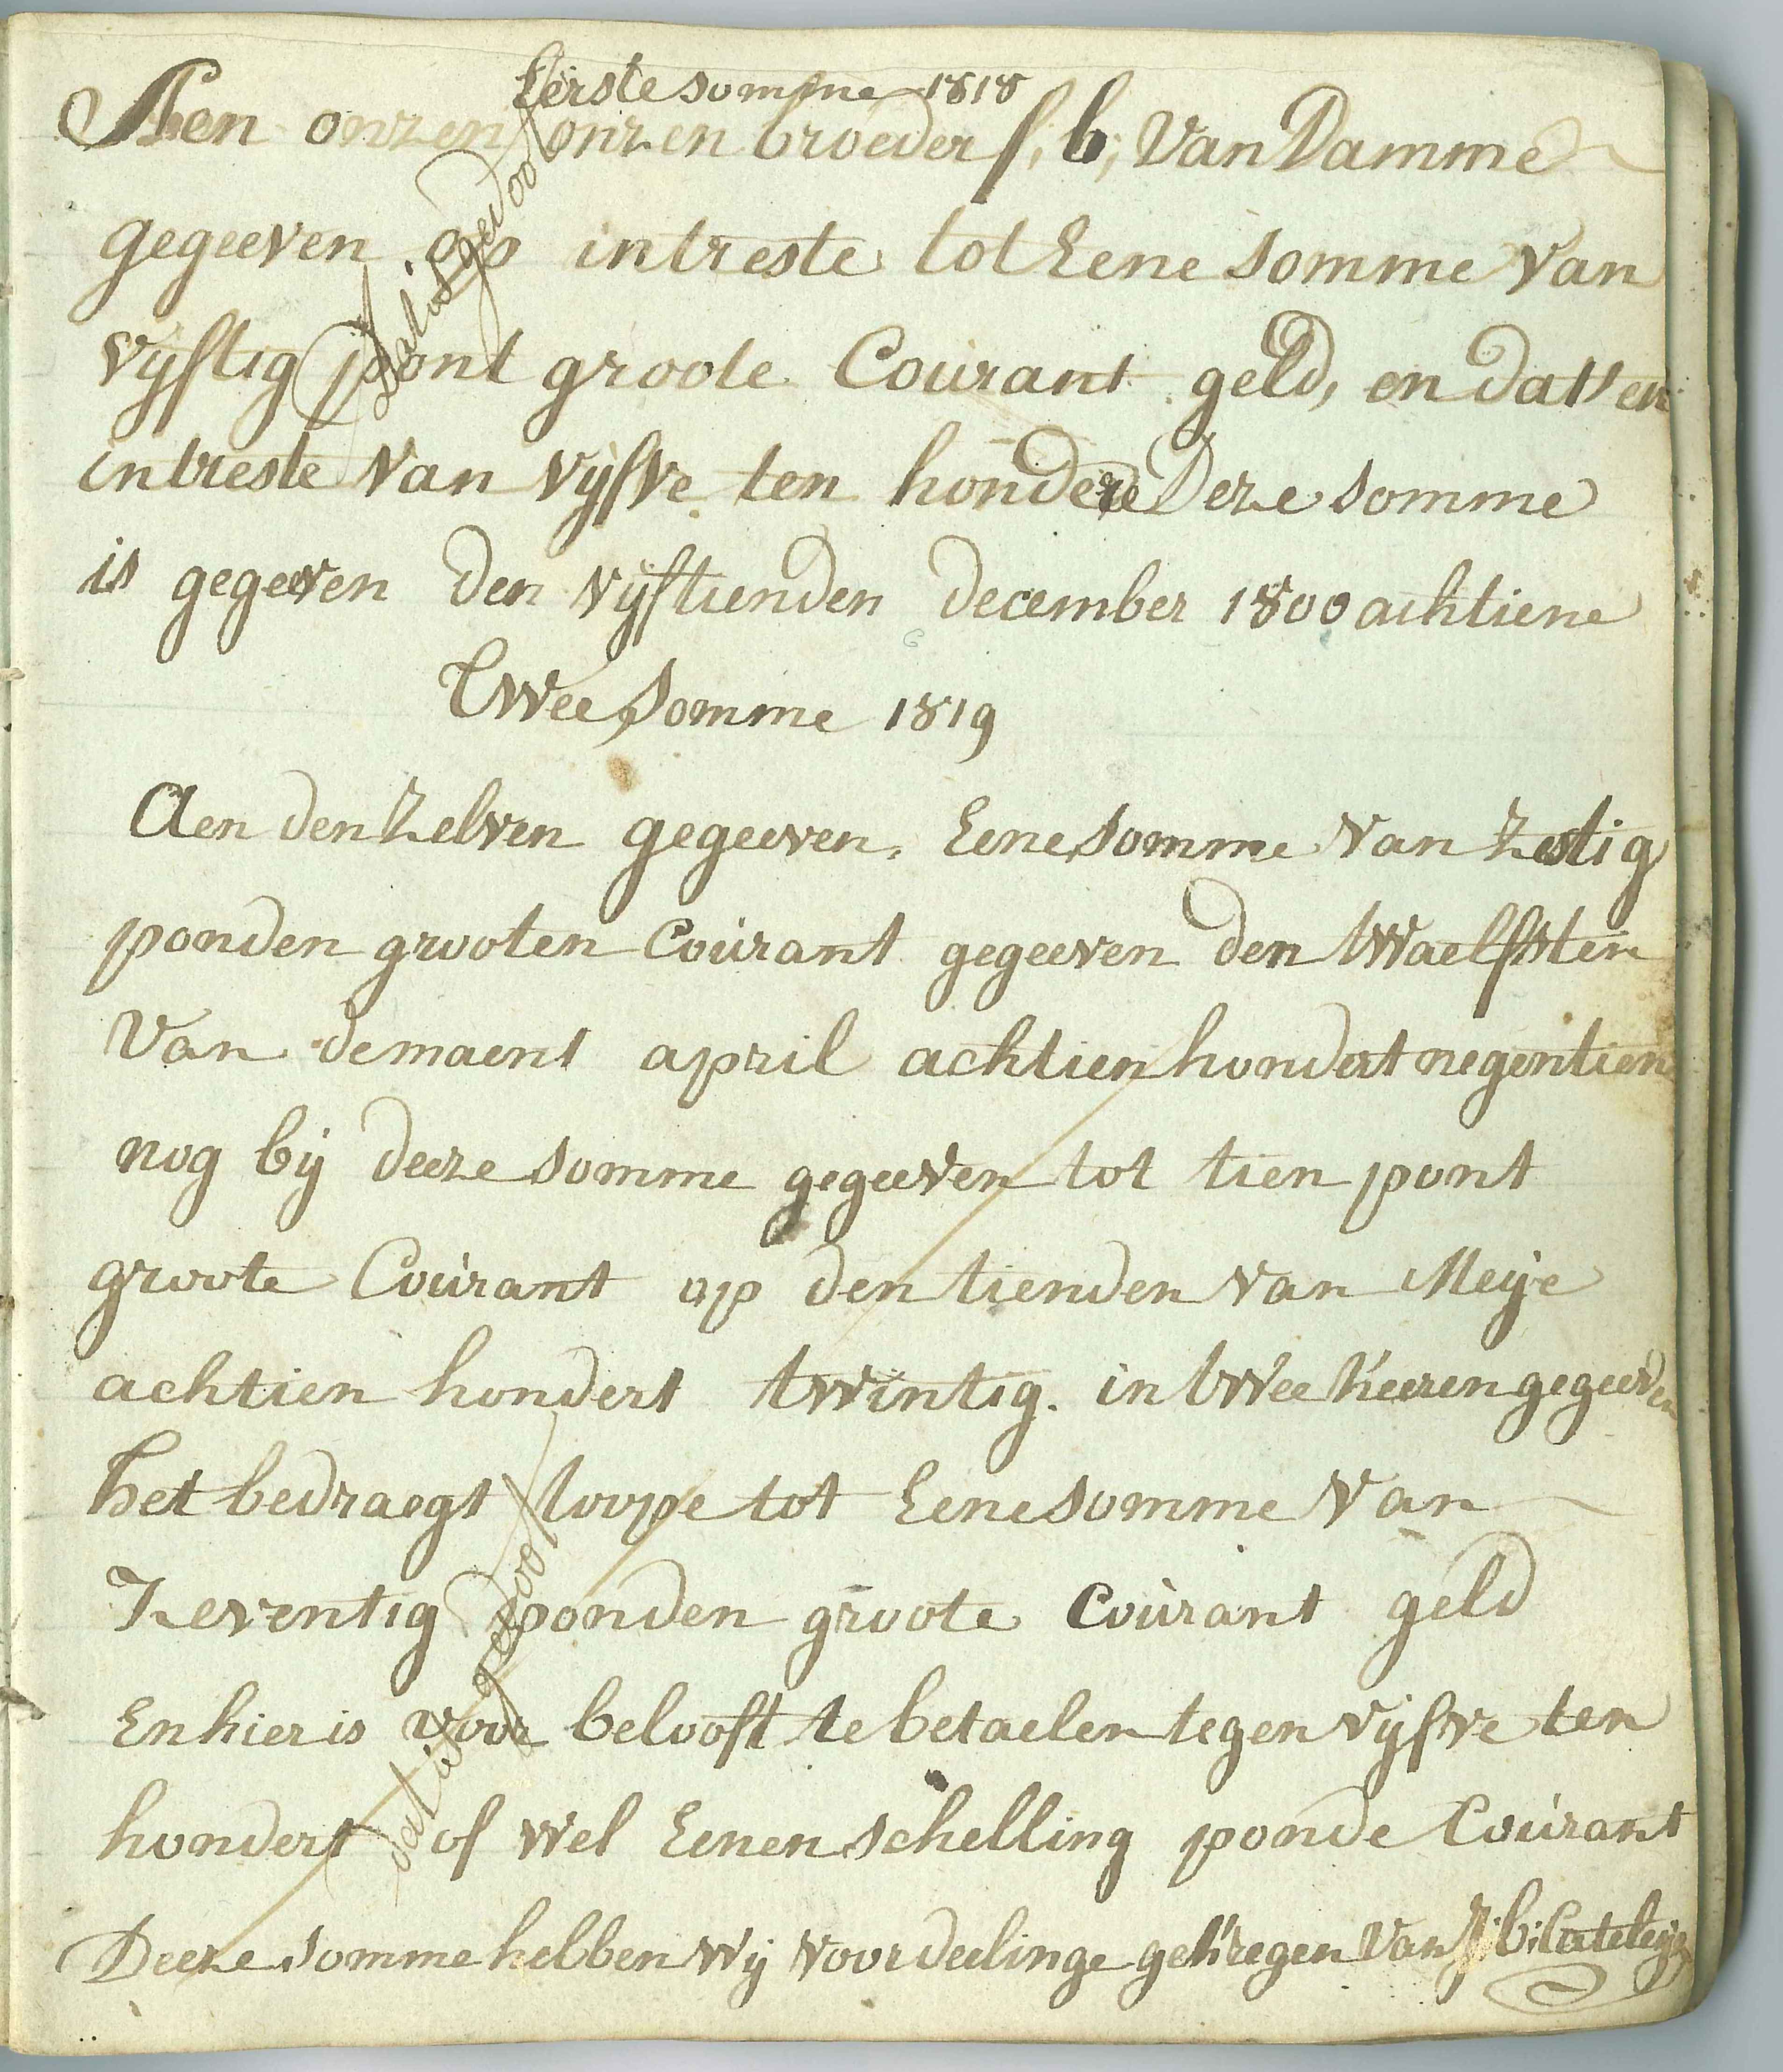 Eerste somme 1818
Aen onzen onzen broeder f, b, Van Damme
gegeeven op intreste tot Eene somme van
vijftig pont groote Courant geld, en dat ten
intreste van vijfve ten hondere Deze somme
is gegeeven den vijftienden december 1800 achtiene
dat is gedoo
Twee somme 1819
Aen den zelven gegeeven, Eene somme van zestig
ponden grooten Courant gegeeven den twaelfsten
Van de maent april achtien hondert negentien
nog bij deeze somme gegeeven tot tien pont
groote Courant op den tienden van Meije
achtien hondert twintig. in twee keeren gegeeven
het bedraegt loope tot Eene somme van
Zeventig ponden groote Courant geld
En hier is voor belooft te betaelen tegen vijfve ten
hondert of wel Eenen schelling ponde Courant
dat is gedoo
Deeze somme hebben wij voor deelinge gekregen van